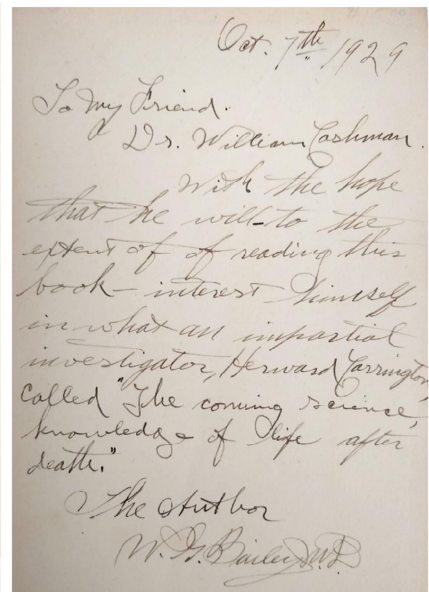 Oct. 7th 1929
To My Friend.
Dr. William Cashman.
With the hope
that he will - to the
extent of of reading this
book - interest himself
in what an impartial
investigator, Herward Carrington,
called "The coming science,
knowledge of life after
death."
The Author
W. G. Bailey M.D.